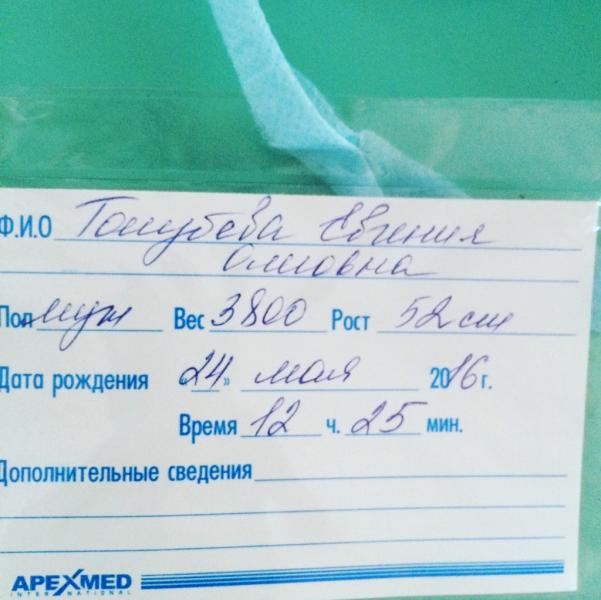 Ф.И.О Голубева Евгения
Олеговна
Пол муж Вес 3800 Рост 52 см
Дата рождения "24" мая 2016 г.
Время 12 ч. 25 мин.
Дополнительные сведения
APEXMED
INTERNATIONAL